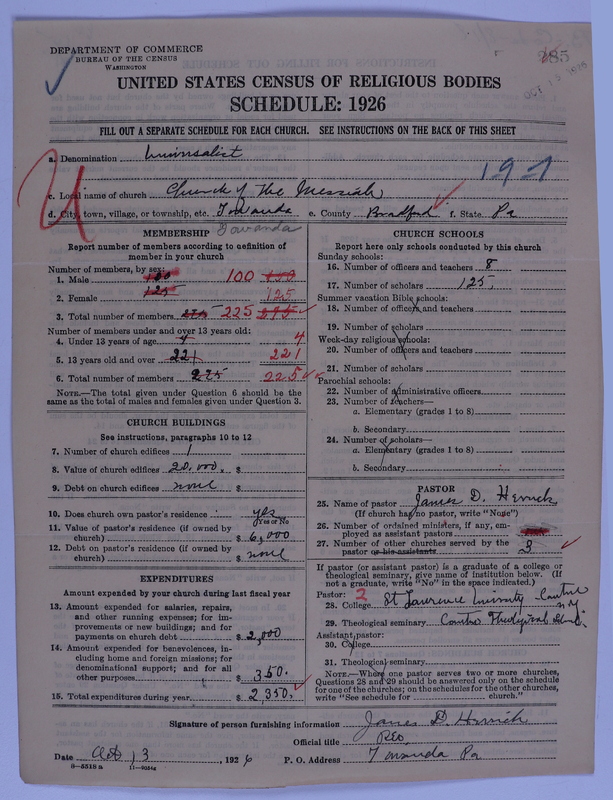 DEPARTMENT OF COMMERCE
BUREAU OF THE CENSUS
WASHINGTON
OCT 15 1926
UNITED STATES CENSUS OF RELIGIOUS BODIES
SCHEDULE: 1926
FILL OUT A SEPARATE SCHEDULE FOR EACH CHURCH. SEE INSTRUCTIONS ON THE BACK OF THIS SHEET
a. Denomination Universalist
U
c. Local name of church Church of The Messiah
d. City, town, village, or township, etc. Towanda e. County Bradford f. State Pa
Towanda
MEMBERSHIP
Report number of members according to definition of member in your church
Number of members, by sex:
1. Male 150 100 150
2. Female 125 125
3. Total number of members 275 225 275
Number of members under and over 13 years old:
4. Under 13 years of age 4 4
5. 13 years old and over 221 221
6. Total number of members 225 225
NOTE.—The total given under Question 6 should be
same as the total of males and females given under Question 3.
CHURCH BUILDINGS
See instructions, paragraphs 10 to 12
7. Number of church edifices 1
8. Value of church edifices 20,000. $
9. Debt on church edifices none $
10. Does church own pastor's residence yes
Yes or No
11. Value of pastor's residence (if owned by
church) $ 6,000
12. Debt on pastor's residence (if owned by
church) $ none
EXPENDITURES
Amount expended by your church during last fiscal year
13. Amount expended for salaries, repairs,
and other running expenses; for im-
provements or new buildings; and for
payments on church debt $ 2,000
14. Amount expended for benevolences, in-
cluding home and foreign missions; for
denominational support; and for all
other purposes $ 350.
15. Total expenditures during year $ 2,350.
CHURCH SCHOOLS
Report here only schools conducted by this church
Sunday schools:
16. Number of officers and teachers 8
17. Number of scholars 125,
Summer vacation Bible schools:
18. Number of officers and teachers
19. Number of scholars
Week-day religious schools:
20. Number of officers and teachers
21. Number of scholars
Parochial schools:
22. Number of administrative officers
23. Number of teachers—
a. Elementary (grades 1 to 8)
b. Secondary
24. Number of scholars—
a. Elementary (grades 1 to 8)
b. Secondary
PASTOR
25. Name of pastor James D. Herrick
(If church has no pastor, write "None")
26. Number of ordained ministers, if any, em-
ployed as assistant pastors
27. Number of other churches served by the
pastor or his assistants 3
If pastor (or assistant pastor) is a graduate of a college or
theological seminary, give name of institution below. (If
not a graduate, write "No" in the space indicated.)
Pastor: 2
28. College St Lawrence University Canton
N.Y.
29. Theological seminary Canton Theological School
Assistant pastor:
30. College
31. Theological seminary
NOTE.—Where one pastor serves two or more churches,
Questions 28 and 29 should be answered only on the schedule
for one of the churches; on the schedules for the other churches,
write "See schedule for ______ church"
Signature of person furnishing information James D. Herrick
Official title Rev
Date Oct 13, 1926 P. O. Address Towanda Pa
8-5518 a